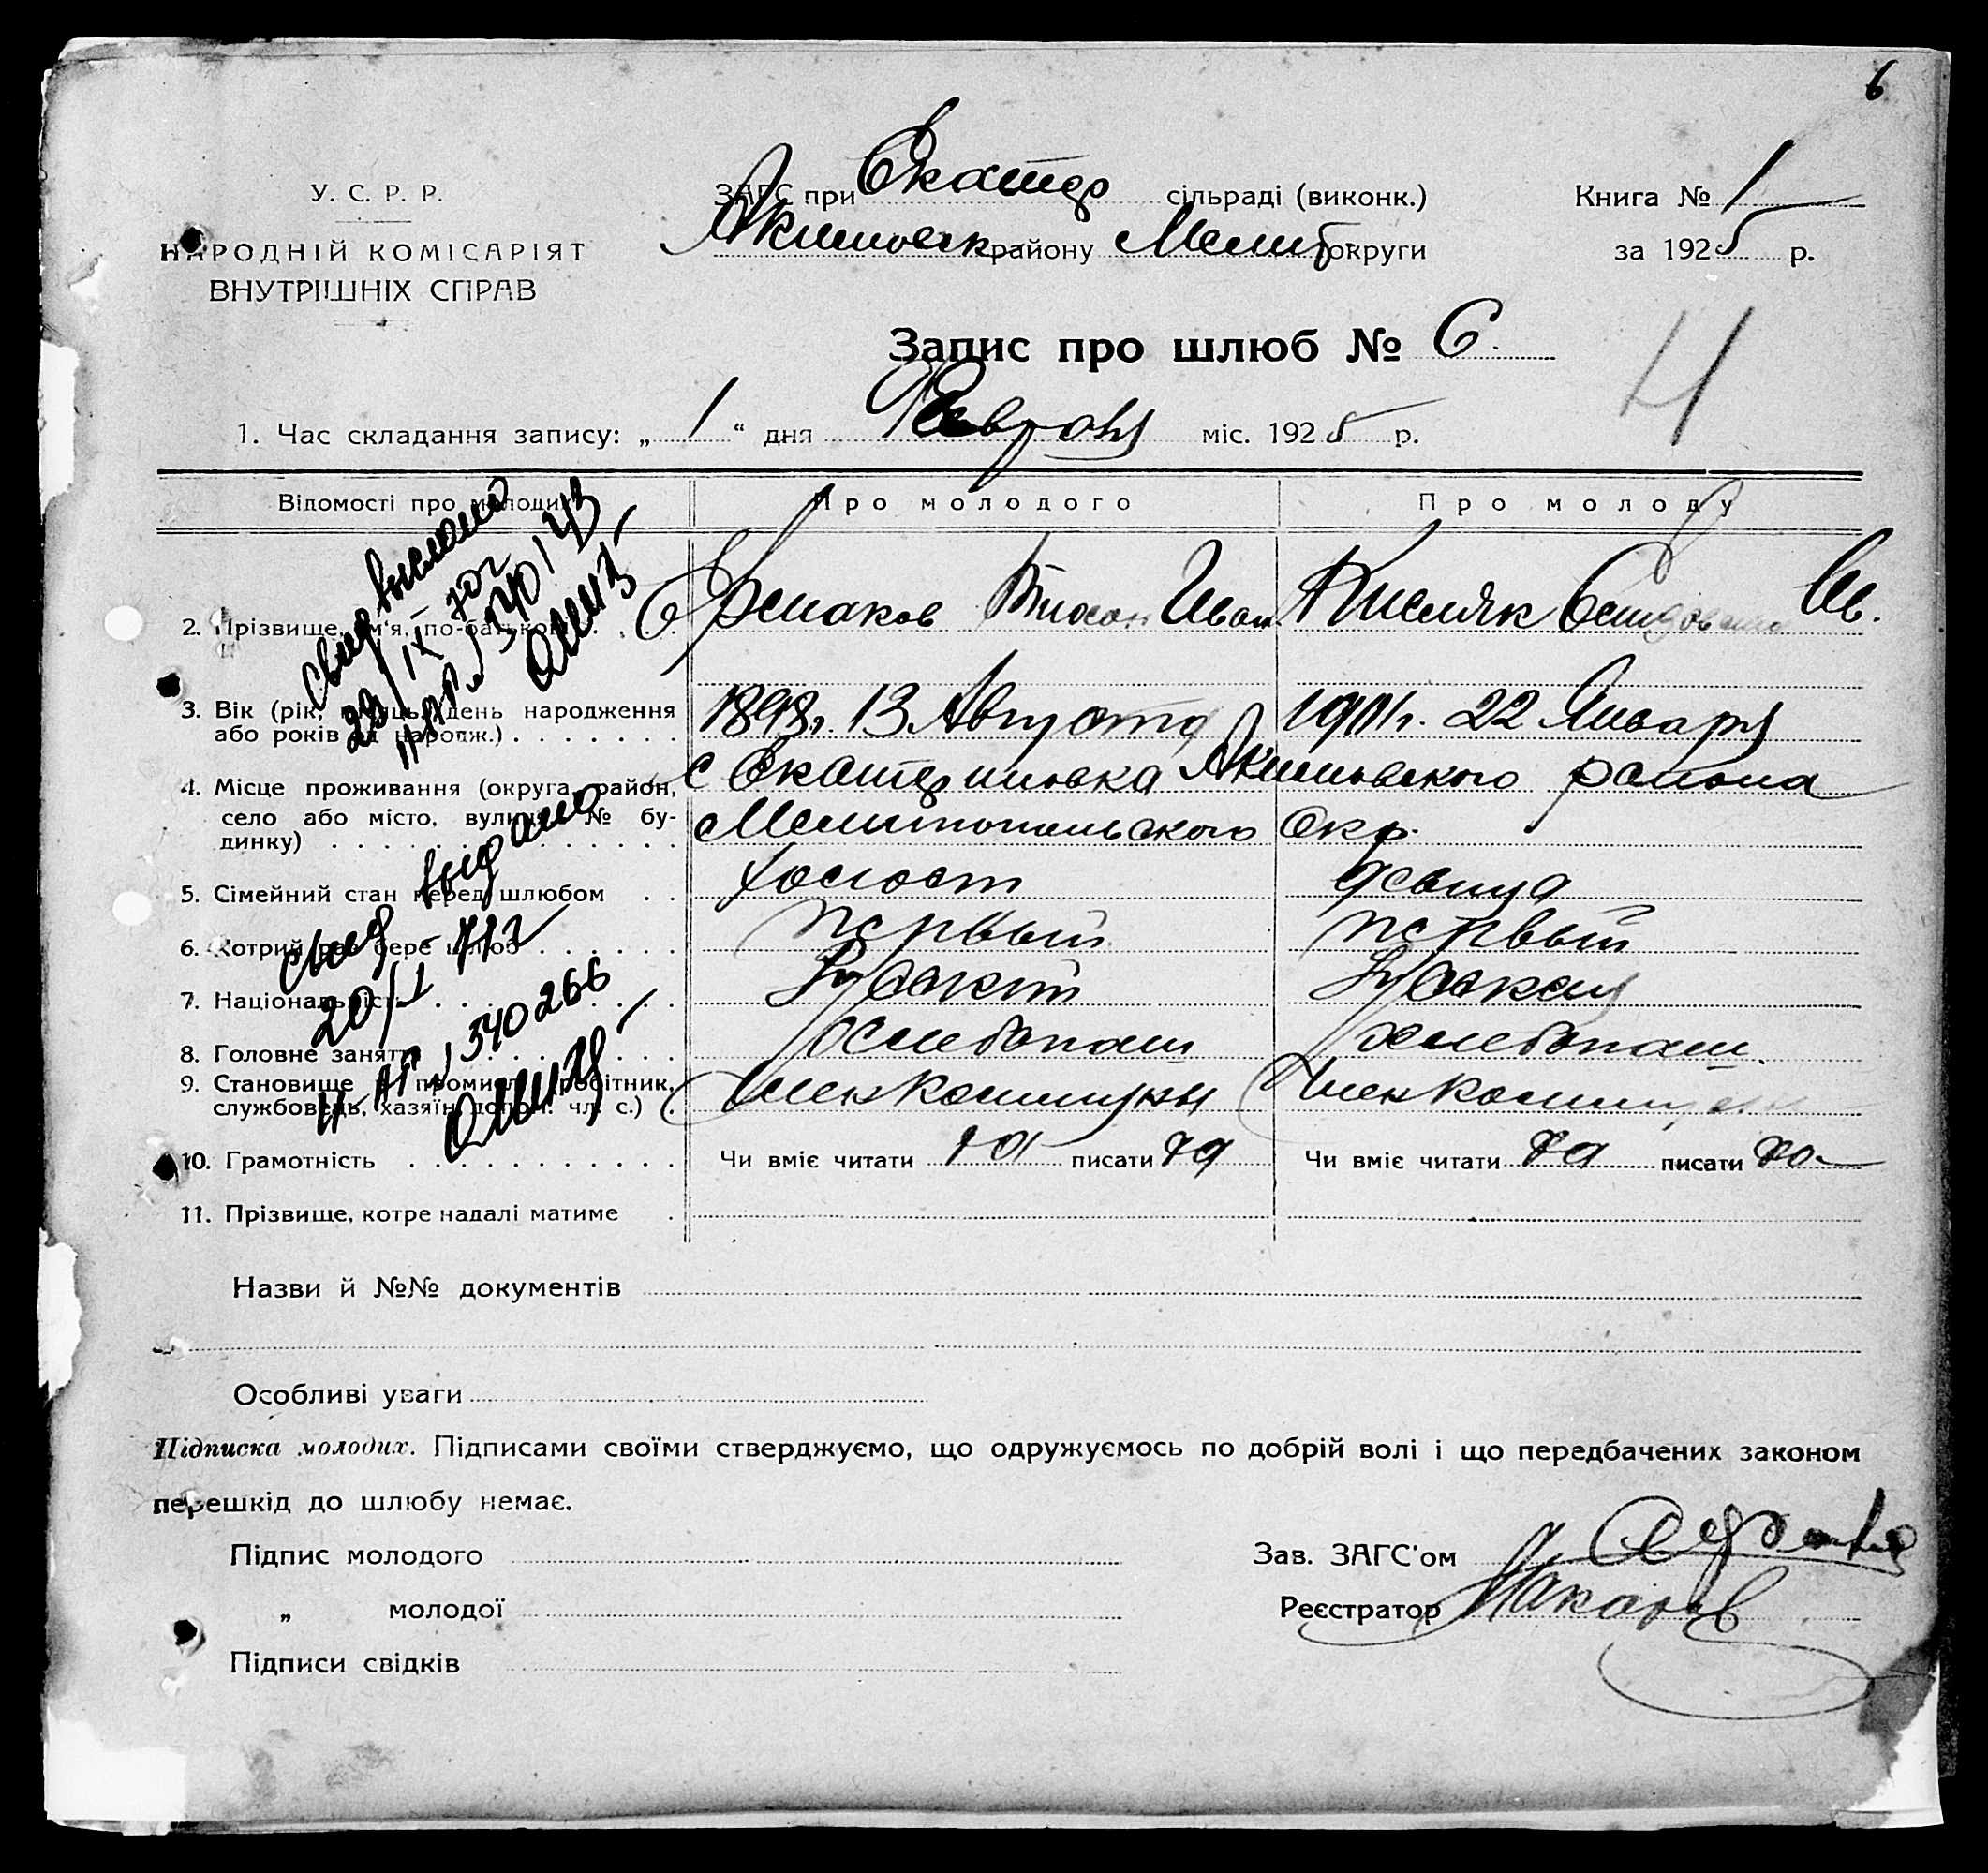 6
У. С. Р. Р.
НАРОДНІЙ КОМІСАРІЯТ
ВНУТРІШНІХ СПРАВ
ЗАГС при Екатер сільраді (виконк.)
Акимовск району Мелит округи
Книга № 1
за 1925 р.
Запис про шлюб № 6.
4
1. Час складання запису: „ 1 “ дня Февраля міс. 1925 р.
Відомості про молодих
Про молодого
Про молоду
2. Прізвище, ім'я, по-батькові
Ермаков Иван
Кисляк Ив.
3. Вік (рік, місяць, день народження
або років від народж.)
1898г. 13 Августа
1901г. 22 Января
4. Місце проживання (округа, район,
село або місто, вулиця, № бу-
динку)
с Екатериновка Акимовского района
Мелитопольского Окр.
5. Сімейний стан перед шлюбом
холост
девица
6. Котрий раз бере шлюб
первый
первый
7. Національність
Русский
Русская
8. Головне заняття
хлебопаш
хлебопаш.
9. Становище в промислі (робітник,
службовець, хазяїн, допом. чл. с.)
член Коммуны
член Коммуны
10. Грамотність
Чи вміє читати да писати да
Чи вміє читати да писати да
11. Прізвище, котре надалі матиме
свид выслано
29/IX 70г
свид выдано
20/I-71г
540266
Назви й №№ документів
Особливі уваги
Підписка молодих. Підписами своїми стверджуємо, що одружуємось по добрій волі і що передбачених законом
перешкід до шлюбу немає.
Підпис молодого
„ молодої
Підписи свідків
Зав. ЗАГС'ом
Реєстратор Макаров